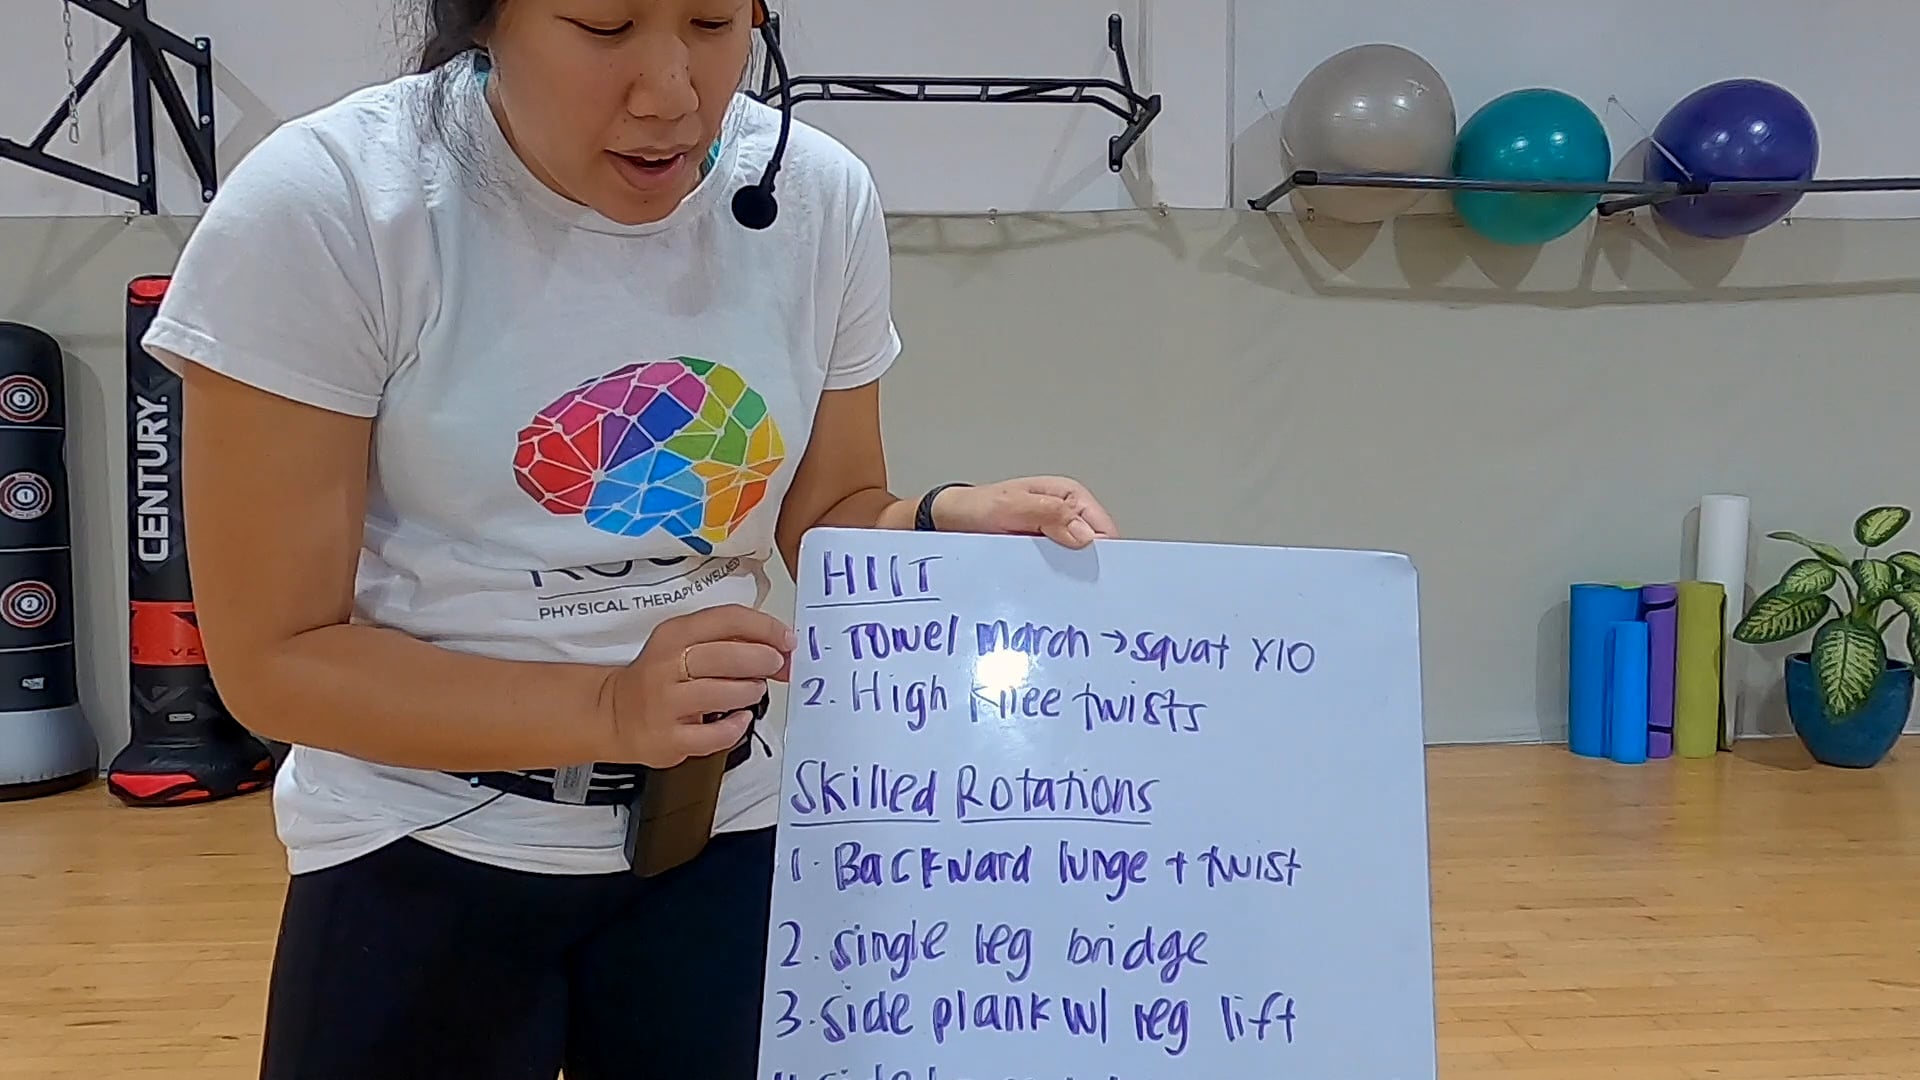 CENTURY.
3
1
2
PHYSICAL THERAPY & WELLNESS
HIIT
1. Towel March → squat x10
2. High Knee twists
Skilled Rotations
1. Backward lunge + twist
2. single leg bridge
3. side plank w/ leg lift